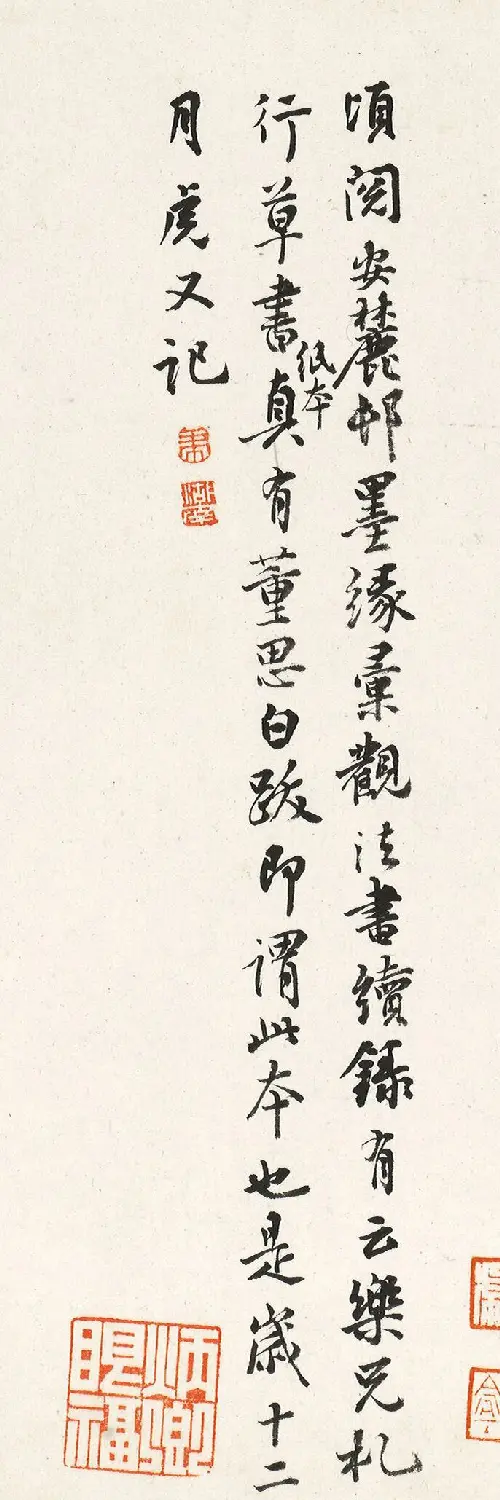 頃閱安麓邨墨緣彙觀法書續錄有云樂兄札
行草書紙本真有董思白跋即謂此本也是歲十二
月虎又記
炳卿眼福